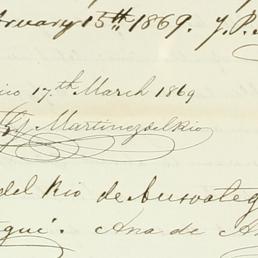 bruary 15th 1869. J. P.
ico 17th March 1869
Martinez del Rio
del Rio de Ansoateg
egui. Ana de A